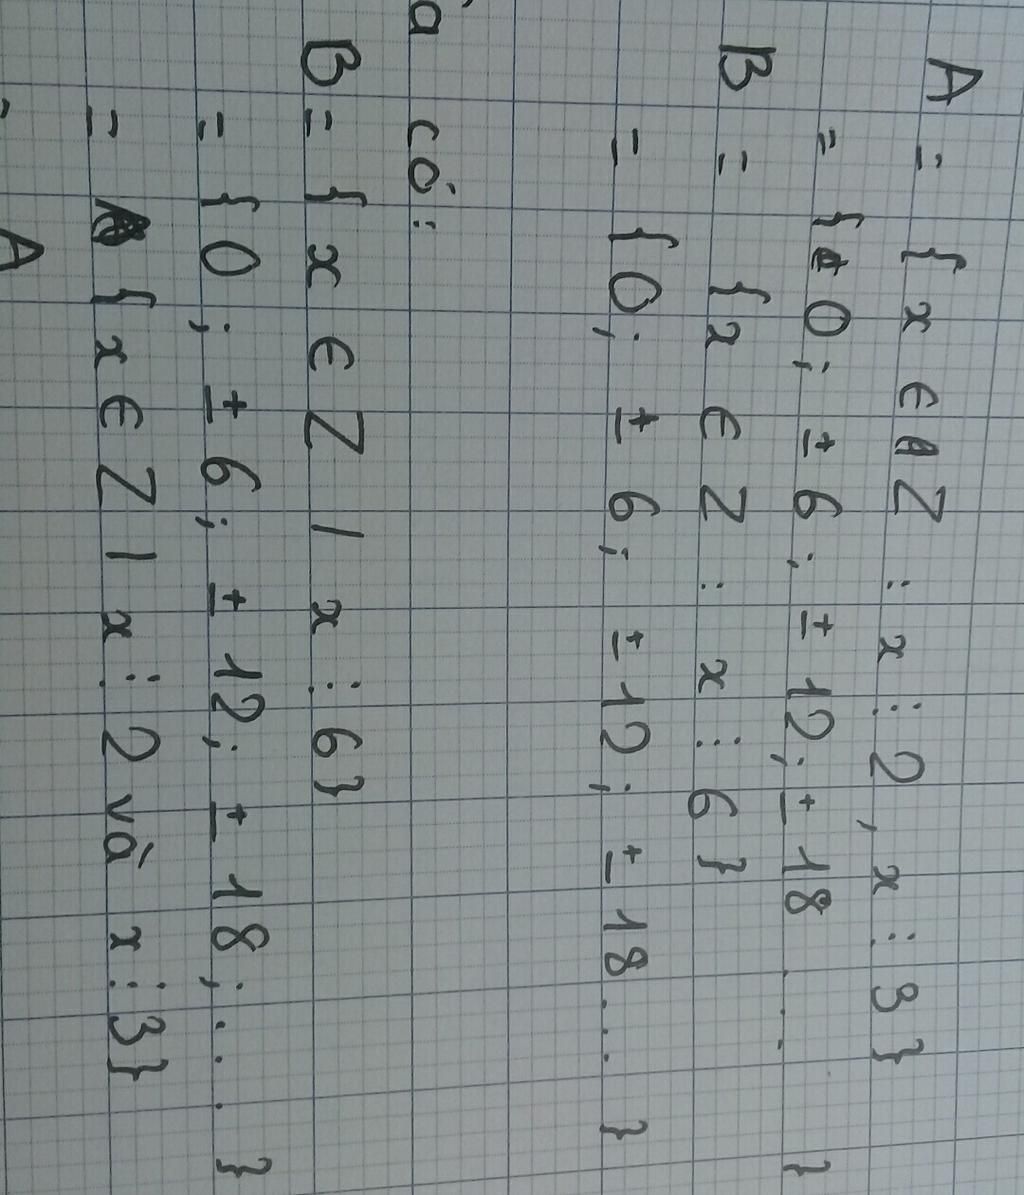 A = { x ∈ Z : x ⋮ 2 , x ⋮ 3 }
= { 0 ; ± 6 ; ± 12 ; ± 18 ... }
B = { x ∈ Z : x ⋮ 6 }
= { 0 ; ± 6 ; ± 12 ; ± 18 ... }
a có :
B = { x ∈ Z | x ⋮ 6 }
= { 0 ; ± 6 ; ± 12 ; ± 18 ; ... }
= { x ∈ Z | x ⋮ 2 và x ⋮ 3 }
A